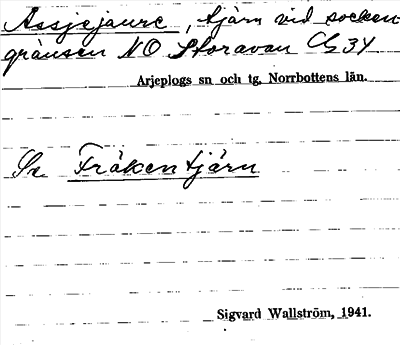 Assjejaure, tjärn vid socken-
gränsen NO Storavan Cg 34
Arjeplogs sn och tg, Norrbottens län.
Sv. Fräkentjärn
Sigvard Wallström, 1941.